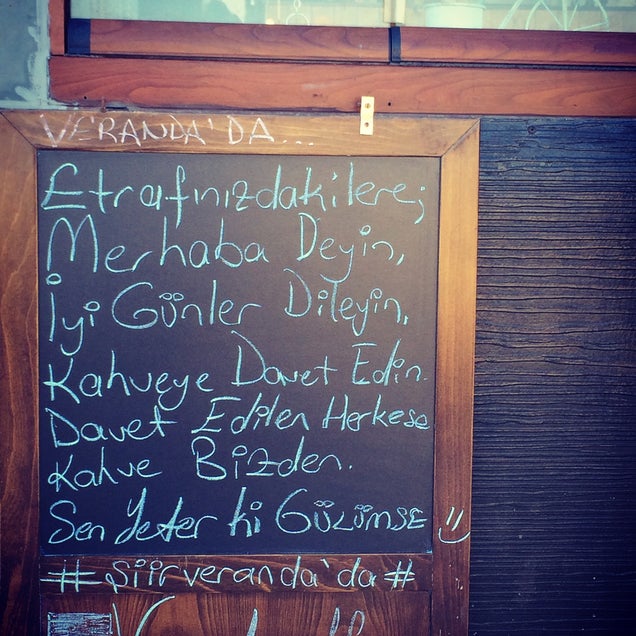 VERANDA'DA...
Etrafınızdakilere;
Merhaba Deyin,
İyi Günler Dileyin,
Kahveye Davet Edin.
Davet Edilen Herkese
Kahve Bizden.
Sen Yeter ki GÜLÜMSE :)
#şiirveranda'da#